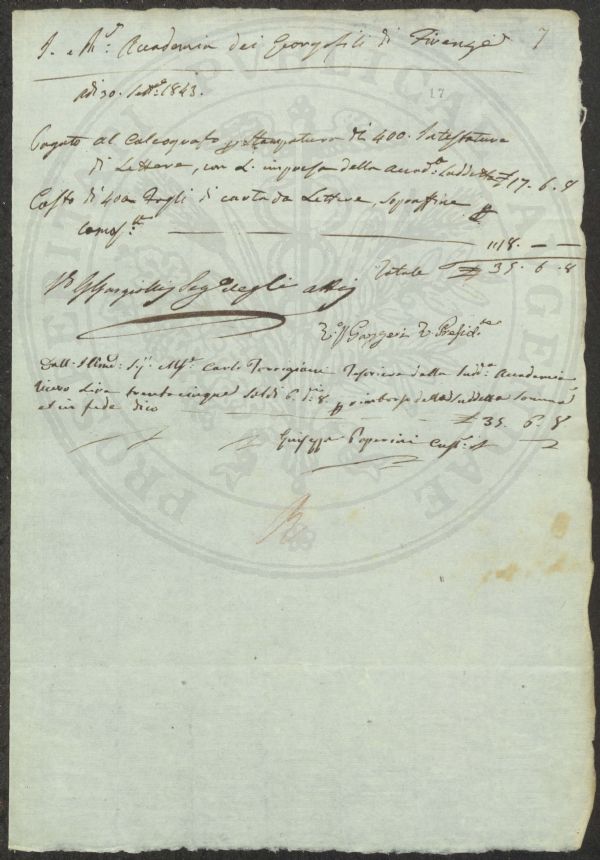 I. e R. Accademia dei Georgofili di Firenze 7
Adì 30. Sett. 1843. 17
Pagato al Calcografo p Stampatura di 400. Intestature
di Lettere, con L'impresa della Accad. Suddetta £ 17. 6. 8
Costo di 400 Fogli di carta da Lettere, Sopraffine
£ 18. — —
Totale £ 35. 6. 8
Seg. degli Atti
V. Presid.te
Dall' Illmo: Sig. Mse. Carlo Torrigiani Tesoriere della Sud. Accademia
ricevo Lire trentacinque Soldi 6. d. 8 p rimborso della Suddetta Somma
et in fede dico £ 35. 6. 8
Giuseppe Cust.
PROSPERITATI PUBLICAE